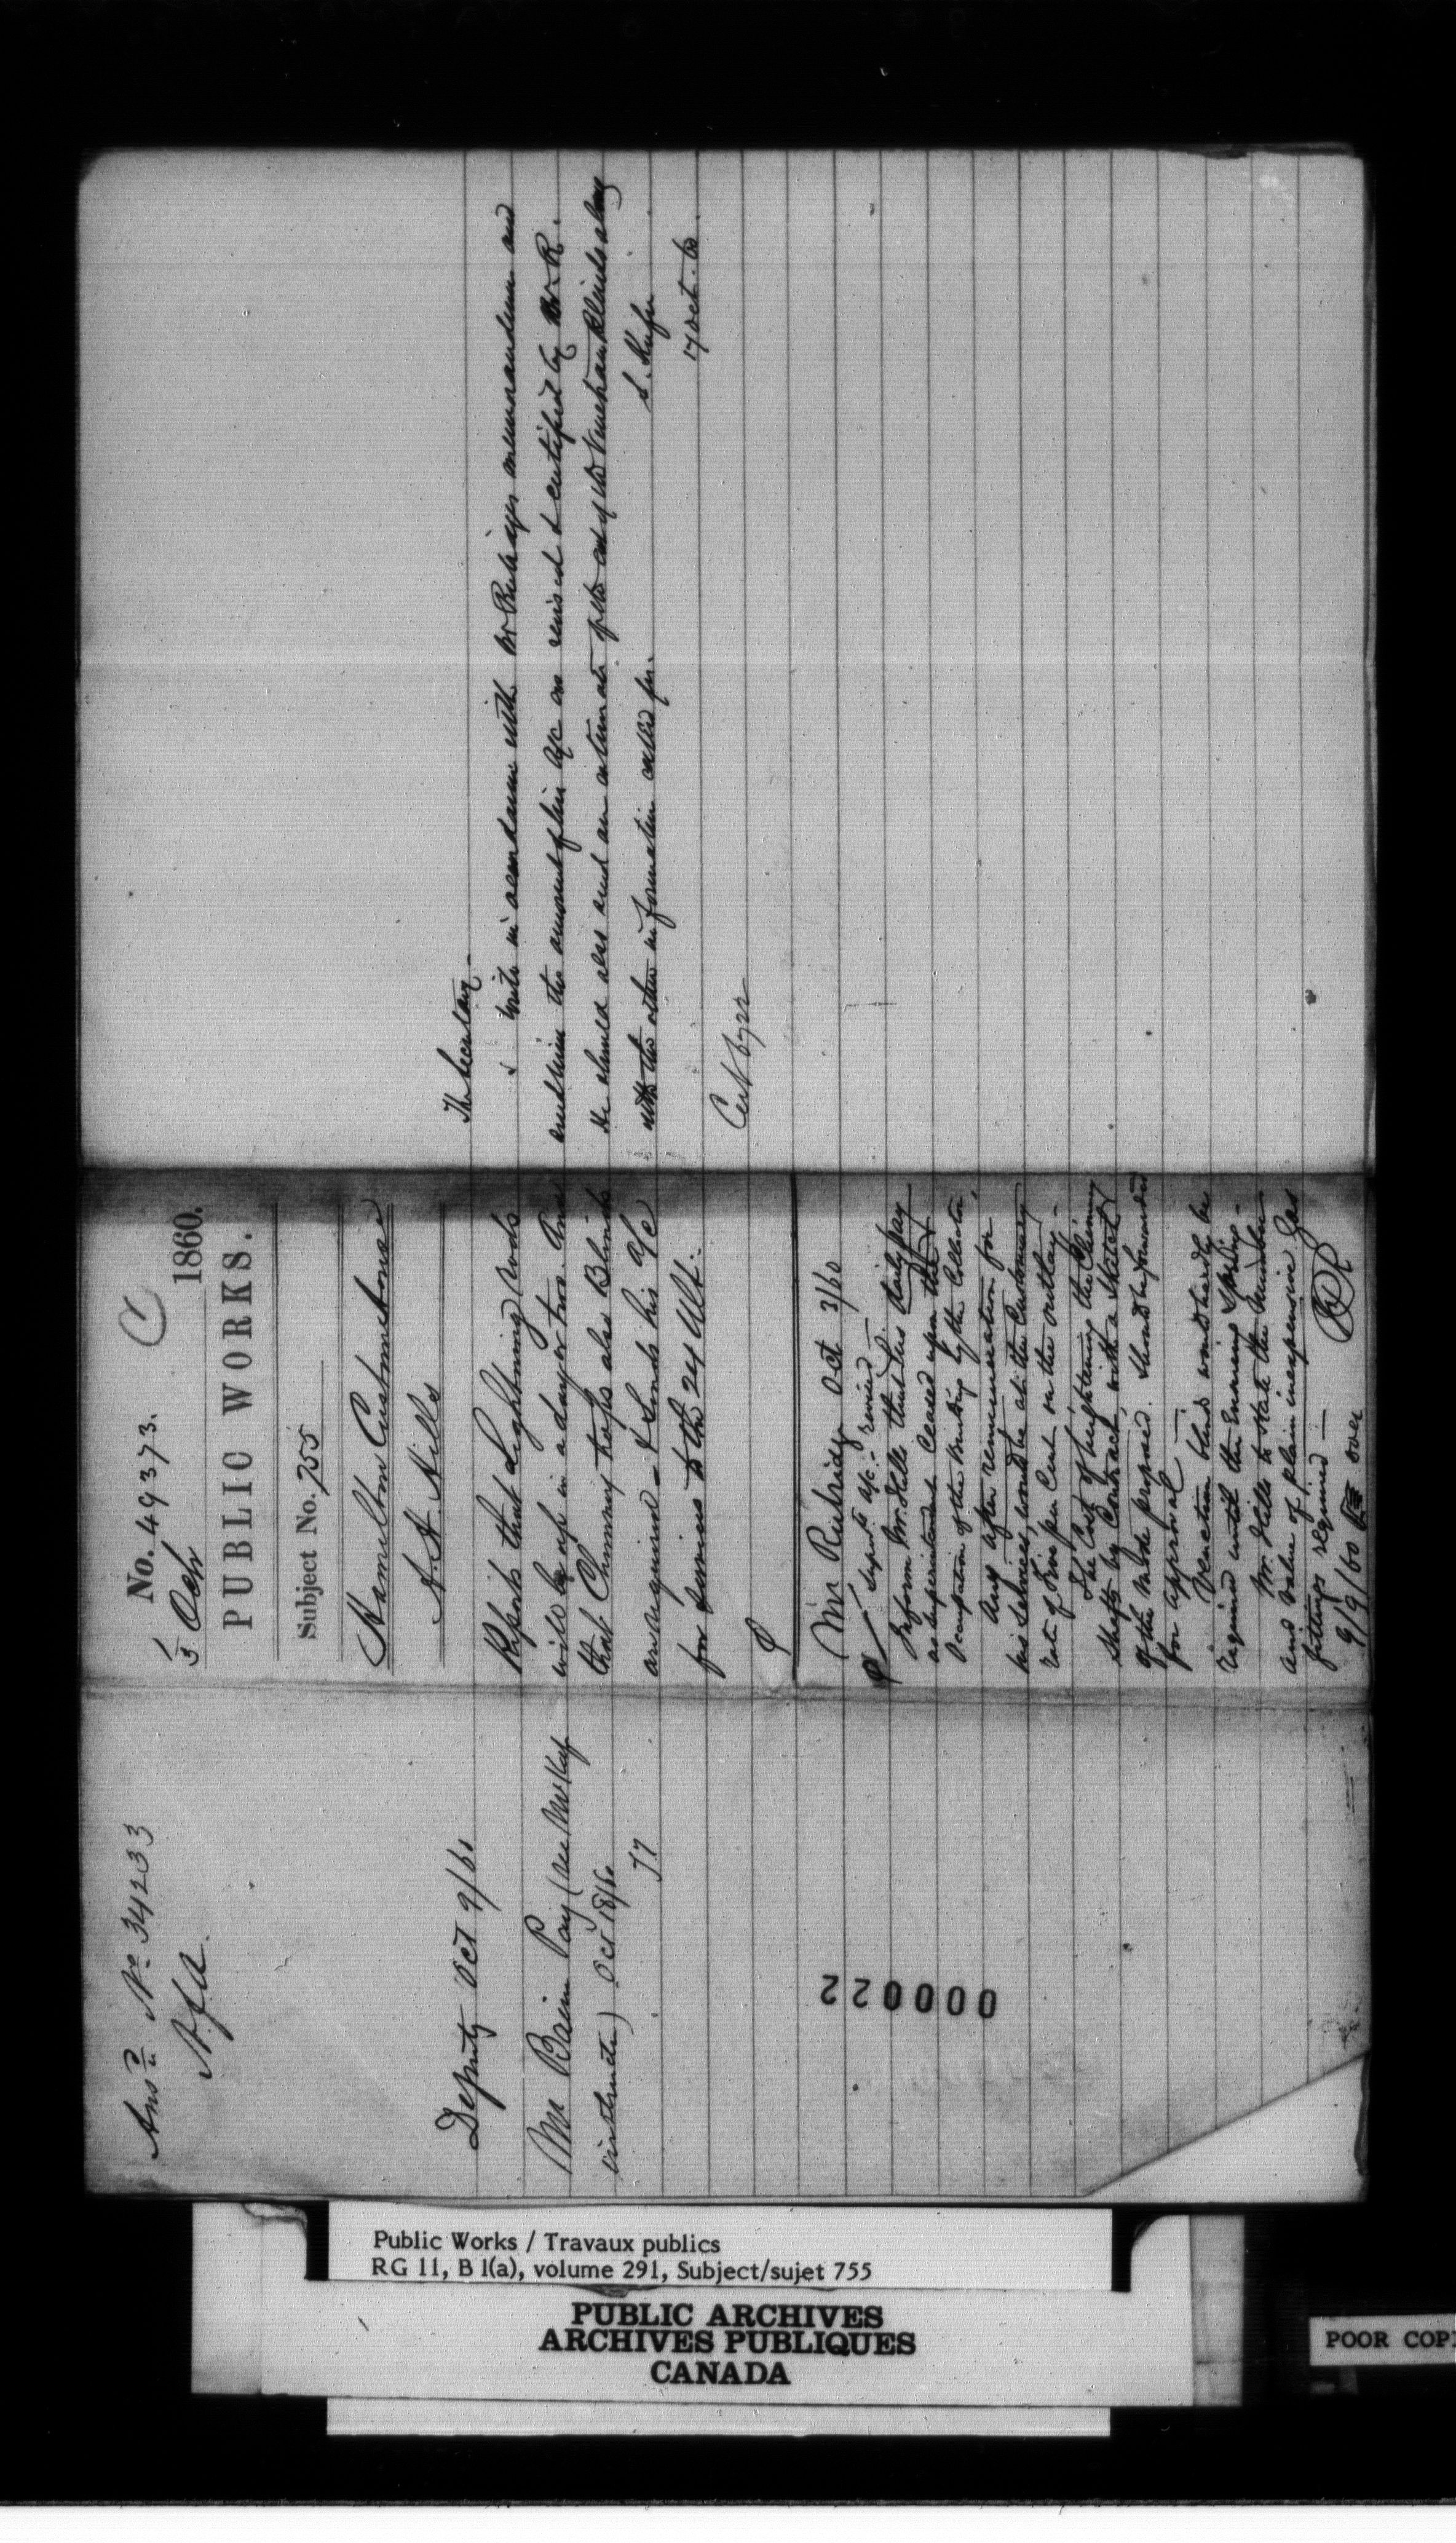 Ansd. No. 34233
A.f.a.
Deputy Oct 9/60
Mr Baine Pay (see Mr Kay
instructn) Oct 18/60
77
000022
No. 49373.
C
3 Octr 1860.
PUBLIC WORKS.
Subject No. 755
Hamilton Customhouse
A. H. Hills
Reports that Lightning rods
will be up in a day or two. And
that Chimney tops also Blinds
are required - & Sends his a/c
for services to the 24 Ult.
Mr Rubidge Oct 3/60
Inform Mr. Hills that his daily pay
as Superintendent Ceased upon the
Occupation of the Building by the Collector,
Any after remuneration for
his Services, would be at the Customary
rate of five per Cent on the outlay -
The Cost of heightening the Chimney
Shafts by Contract, with a Sketch
of the mode proposed. Should be forwarded
for approval -
Venetian blinds would hardly be
required until the Ensuing Spring -
Mr. Hills to state the number
and value of plain inexpensive Gas
fittings required -
9/9/60 over
The Secretary -
Write in accordance with Mr Rubidges memorandum and
send him the amount of his a/c as revised & certified by Mr R.
He should also send an estimate of the cost of the Venetian Blinds along
with the other information called for.
17 Oct. 60.
Cert 6722
Public Works / Travaux publics
RG 11, B 1(a), volume 291, Subject/sujet 755
PUBLIC ARCHIVES
ARCHIVES PUBLIQUES
CANADA
POOR COP